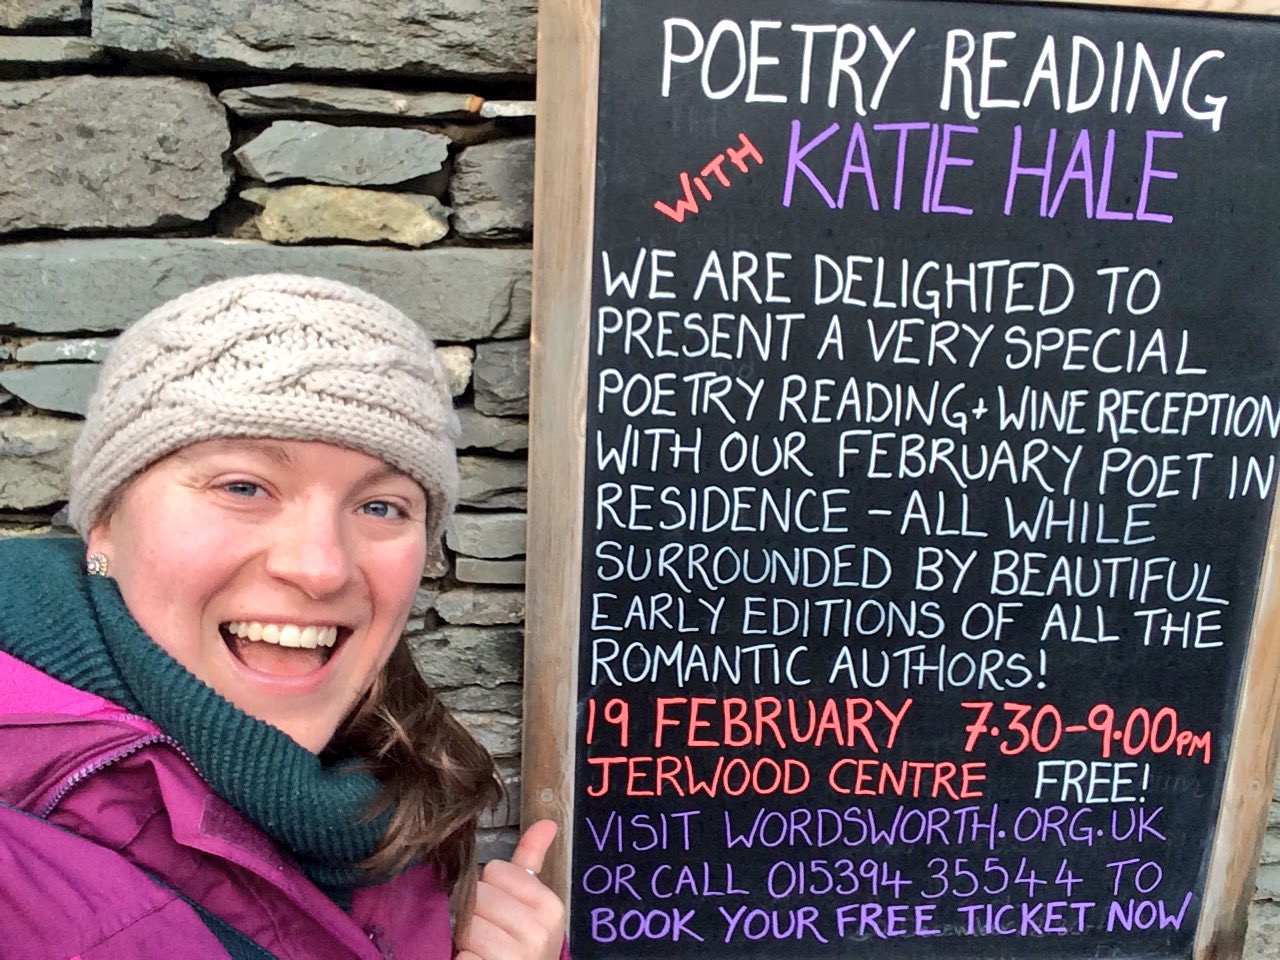 POETRY READING
WITH KATIE HALE
WE ARE DELIGHTED TO
PRESENT A VERY SPECIAL
POETRY READING + WINE RECEPTION
WITH OUR FEBRUARY POET IN
RESIDENCE - ALL WHILE
SURROUNDED BY BEAUTIFUL
EARLY EDITIONS OF ALL THE
ROMANTIC AUTHORS!
19 FEBRUARY 7.30-9.00PM
JERWOOD CENTRE FREE!
VISIT WORDSWORTH.ORG.UK
OR CALL 015394 35544 TO
BOOK YOUR FREE TICKET NOW